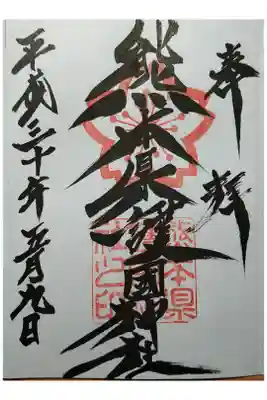 奉拝
熊本県護國神社
平成三十年五月九日
熊本県
社之印